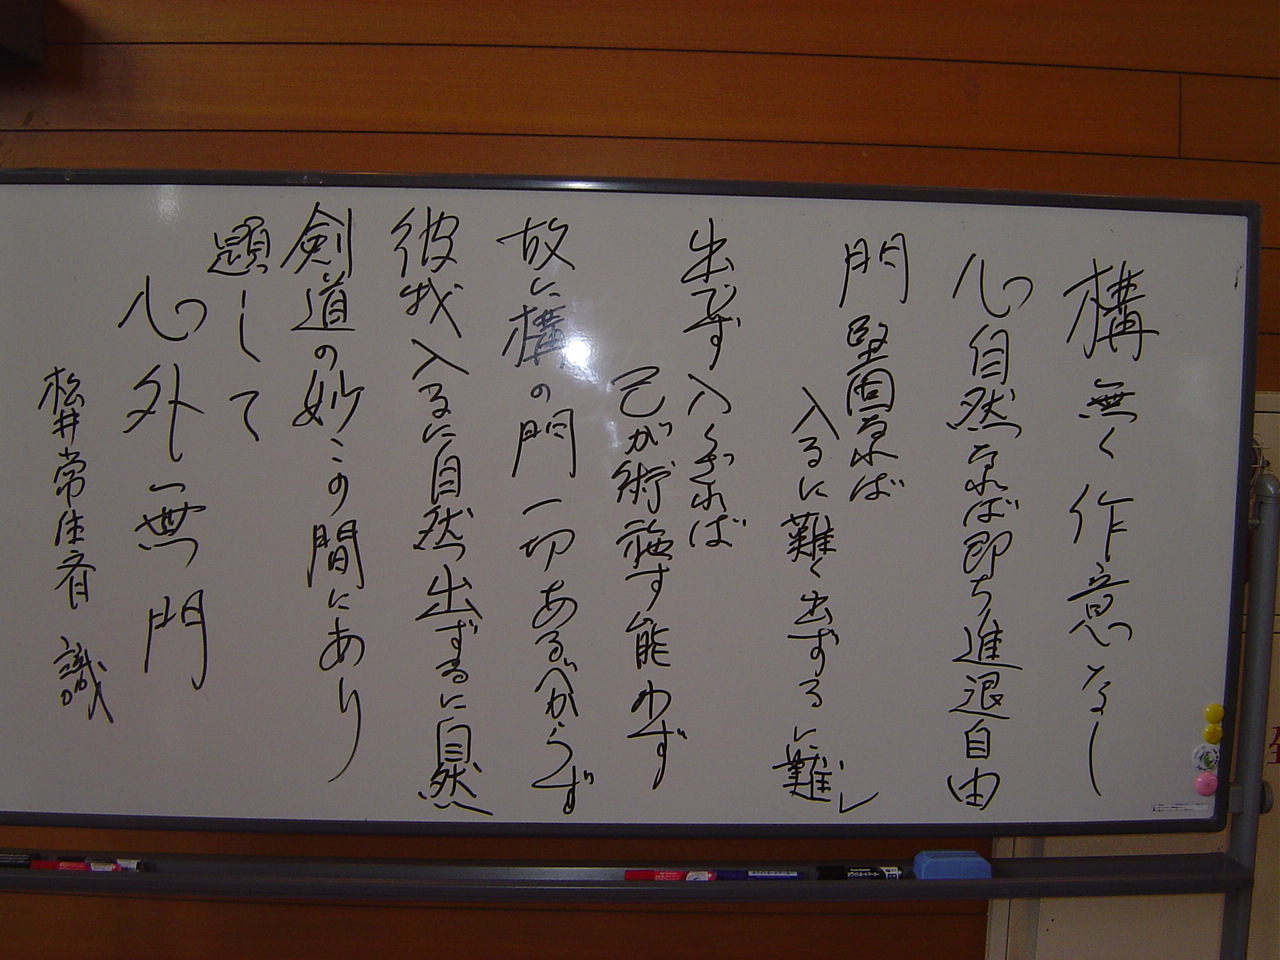 構無く作意なし
心自然なれば即ち進退自由
門堅固なれば
入るに難く出ずるに難し
出でず入らざれば
己が術施す能わず
故に構の門一切あるべからず
彼我入るに自然出ずるに自然
剣道の妙この間にあり
題して
心外無門
常生斉 識